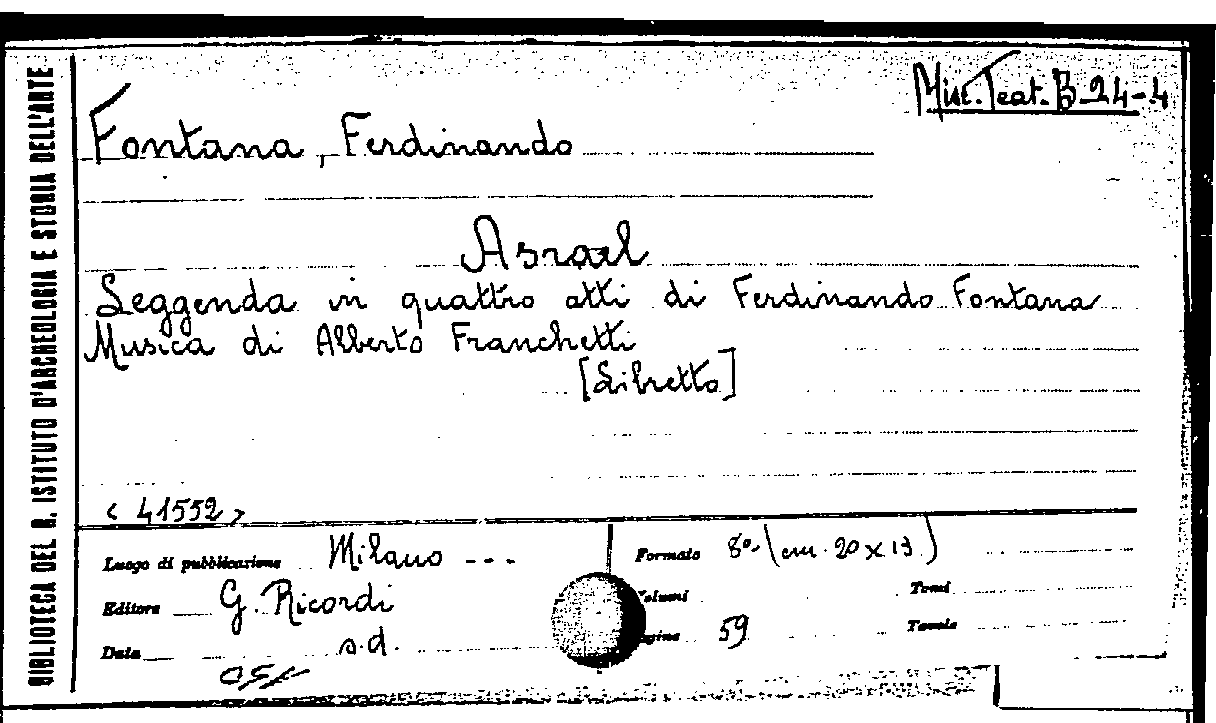 BIBLIOTECA DEL R. ISTITUTO D'ARCHEOLOGIA E STORIA DELL'ARTE
Misc. Teat. B 24-4
Fontana, Ferdinando
Asrael
Leggenda in quattro atti di Ferdinando Fontana
Musica di Alberto Franchetti
[Libretto]
< 41552 >
Luogo di pubblicazione Milano ---
Formato 8°. (cm. 20 x 13)
Editore G. Ricordi
Volumi
Tomi
Data s.d.
Pagine 59
Tavole